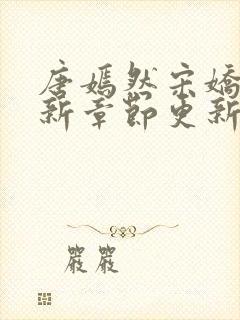 唐嫣然宋嬌
新章節更新
嚴嚴